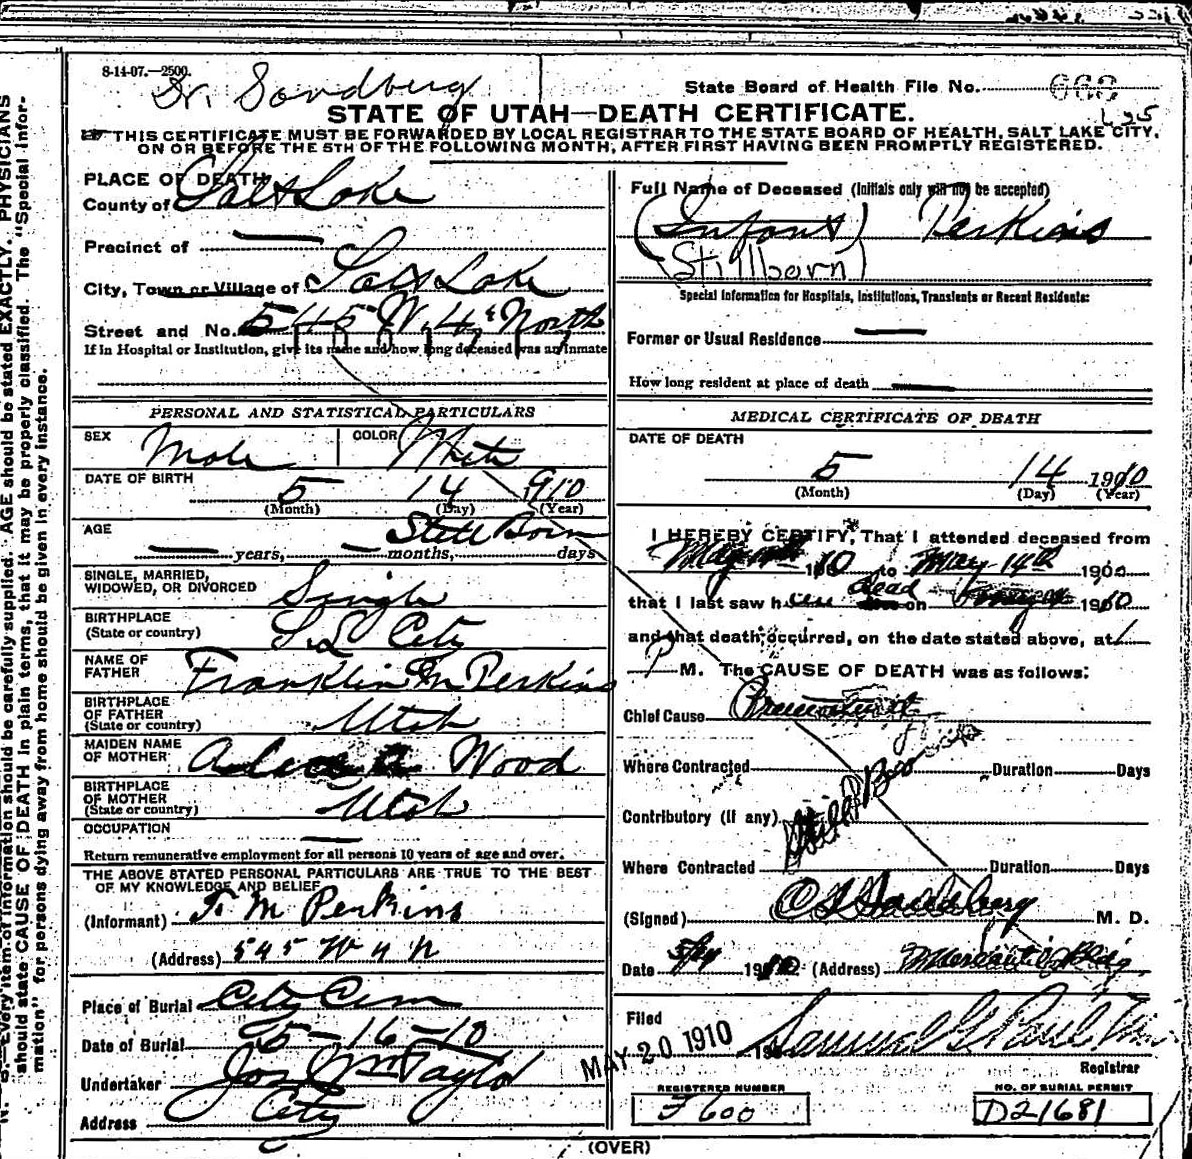 8-14-07.—2500.
Dr. Sandberg
State Board of Health File No.
STATE OF UTAH—DEATH CERTIFICATE.
THIS CERTIFICATE MUST BE FORWARDED BY LOCAL REGISTRAR TO THE STATE BOARD OF HEALTH, SALT LAKE CITY,
ON OR BEFORE THE 5TH OF THE FOLLOWING MONTH, AFTER FIRST HAVING BEEN PROMPTLY REGISTERED.
PLACE OF DEATH
County of Salt Lake
Precinct of
City, Town or Village of Salt Lake
Street and No. 545 W. 4th North
If in Hospital or Institution, give its name and how long deceased was an inmate
PERSONAL AND STATISTICAL PARTICULARS
SEX Male COLOR White
DATE OF BIRTH 5 14 910
(Month) (Day) (Year)
AGE Still Born
years, months, days
SINGLE, MARRIED,
WIDOWED, OR DIVORCED Single
BIRTHPLACE
(State or country) S.L City
NAME OF
FATHER Franklin M Perkins
BIRTHPLACE
OF FATHER
(State or country) Utah
MAIDEN NAME
OF MOTHER Wood
BIRTHPLACE
OF MOTHER
(State or country) Utah
OCCUPATION
Return remunerative employment for all persons 10 years of age and over.
THE ABOVE STATED PERSONAL PARTICULARS ARE TRUE TO THE BEST
OF MY KNOWLEDGE AND BELIEF
(Informant) F. M Perkins
(Address) 545 W 4 N
Place of Burial City Cem
Date of Burial 5-16-10
Undertaker Jos Wm Taylor
Address City
Full Name of Deceased (Initials only will not be accepted)
(Infant) Perkins
(Stillborn)
Special Information for Hospitals, Institutions, Transients or Recent Residents:
Former or Usual Residence
How long resident at place of death
MEDICAL CERTIFICATE OF DEATH
DATE OF DEATH
5 14 1910
(Month) (Day) (Year)
I HEREBY CERTIFY, That I attended deceased from
May 10 to May 14th 190
that I last saw h dead on 1910
and that death occurred, on the date stated above, at 1
P M. The CAUSE OF DEATH was as follows:
Chief Cause Prematurity
Where Contracted Duration Days
Contributory (if any) Still Born
Where Contracted Duration Days
(Signed) Sandberg M. D.
Date 19 (Address) Mercantile Bldg
Filed
MAY 20 1910 Samuel G. Paul
Registrar
REGISTERED NUMBER
F600
NO. OF BURIAL PERMIT
D21681
(OVER)
N. B.—Every item of information should be carefully supplied. AGE should be stated EXACTLY. PHYSICIANS
should state CAUSE OF DEATH in plain terms, that it may be properly classified. The "Special Infor-
mation" for persons dying away from home should be given in every instance.